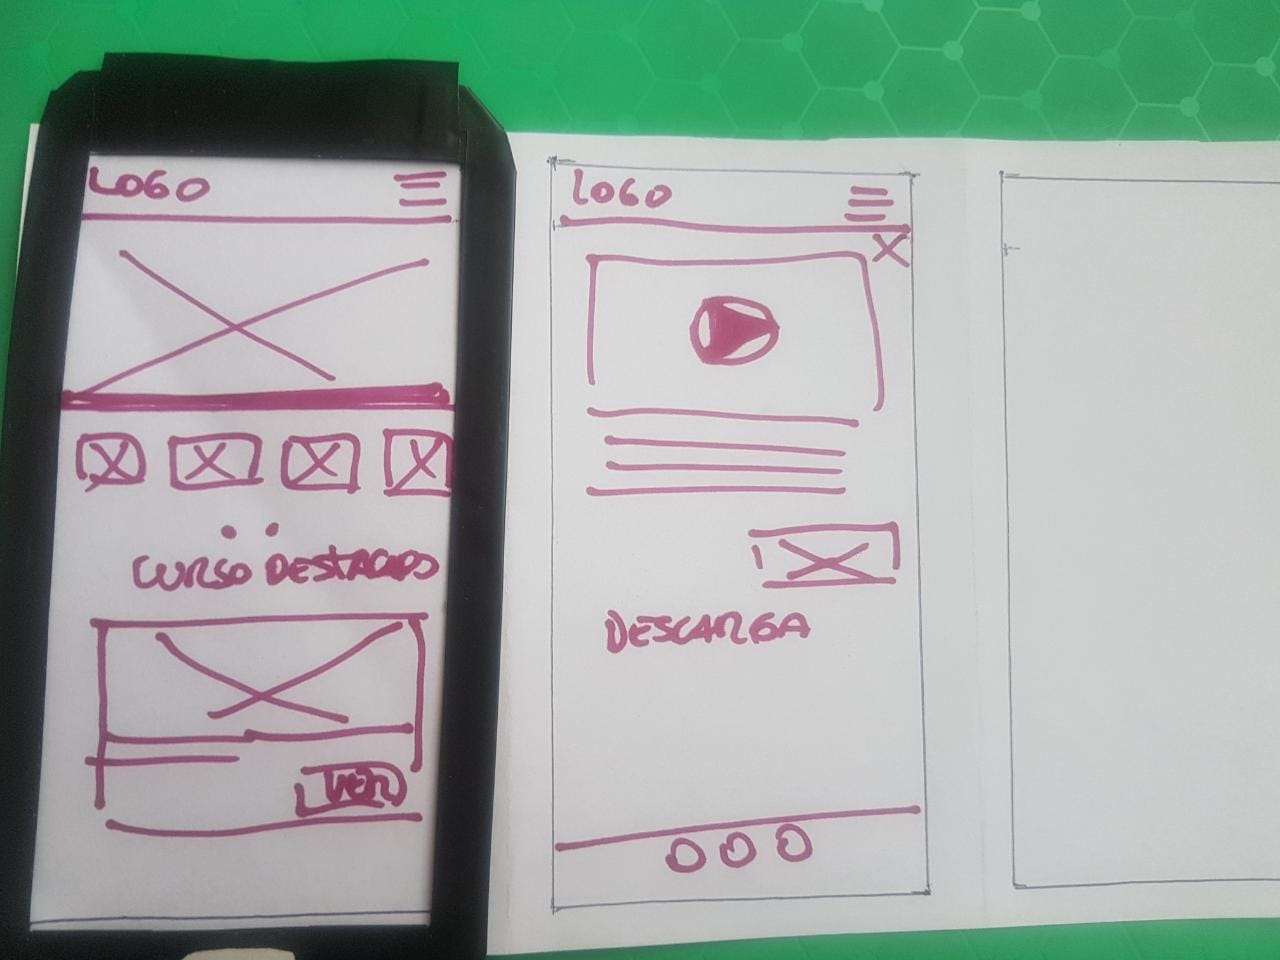 LOGO
CURSO DESTACADO
VER
LOGO
DESCARGA